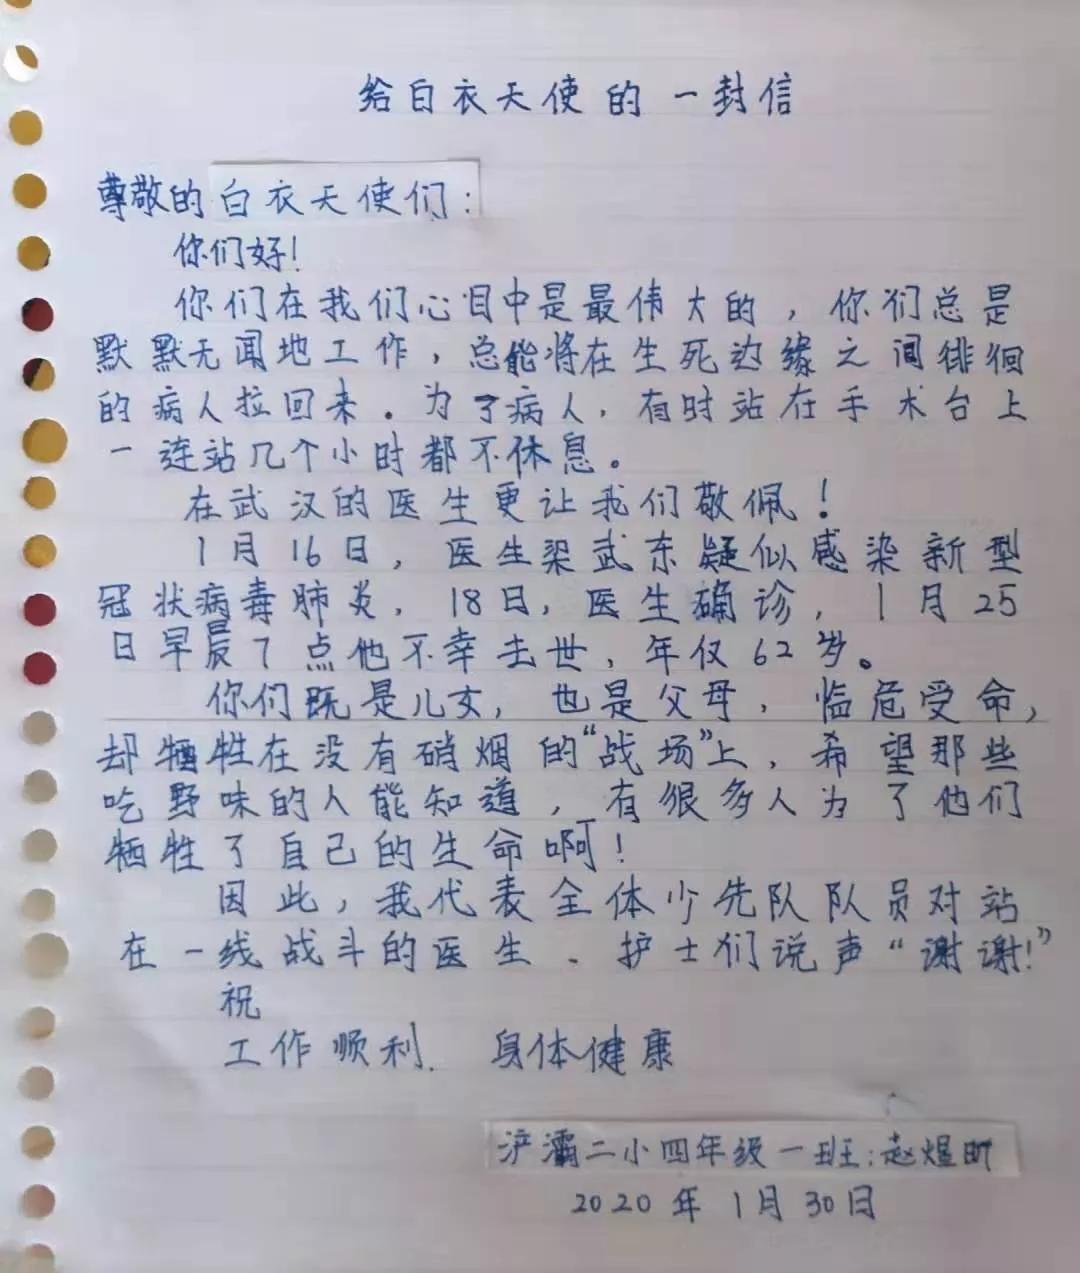 给白衣天使的一封信
尊敬的白衣天使们:
你们好!
你们在我们心目中是最伟大的，你们总是
默默无闻地工作，总能将在生死边缘之间徘徊
的病人拉回来.为了病人，有时站在手术台上
一连站几个小时都不休息。
在武汉的医生更让我们敬佩！
1月16日，医生梁武东疑似感染新型
冠状病毒肺炎，18日，医生确诊，1月25
日早晨7点他不幸去世，年仅62岁。
你们既是儿女，也是父母，临危受命，
却牺牲在没有硝烟的“战场”上，希望那些
吃野味的人能知道，有很多人为了他们
牺牲了自己的生命啊！
因此，我代表全体少先队队员对站
在一线战斗的医生、护士们说声“谢谢!”
祝
工作顺利.身体健康
浐灞二小四年级一班:赵煜昕
2020年1月30日